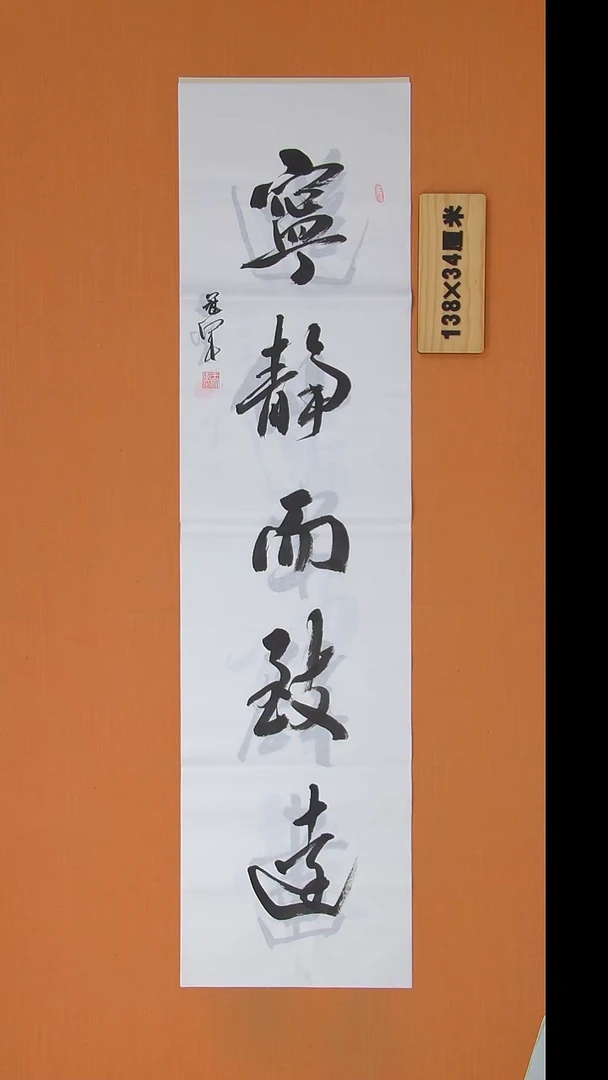 寧靜而致達
138×34厘米